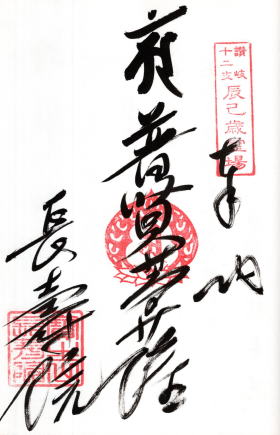 讃岐
十二支
辰巳歳霊場
奉納
普賢菩薩
長壽院